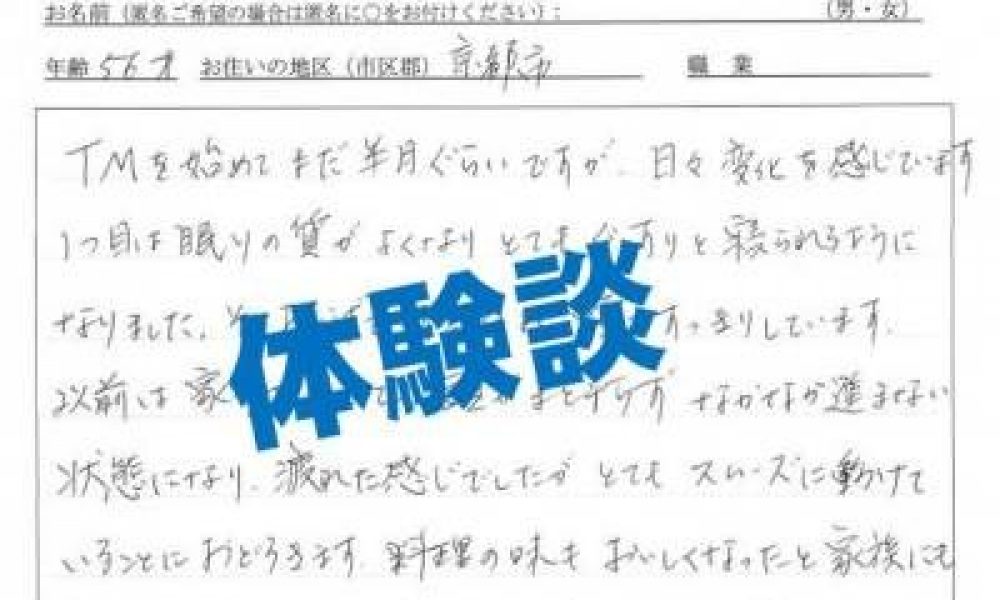 お名前（匿名ご希望の場合は匿名に○をお付けください）： （男・女）
年齢 56才 お住いの地区（市区郡） 京都市 職業
TMを始めてまだ半月ぐらいですが、日々変化を感じています
1つ目は眠りの質がよくなりとてもぐっすりと寝られるように
なりました。 すっきりしています。
以前は家 まとまらず なかなか進まない
状態になり、疲れた感じでしたが とても スムーズに動けて
いることにおどろきます。料理の味もおいしくなったと家族にも
体験談